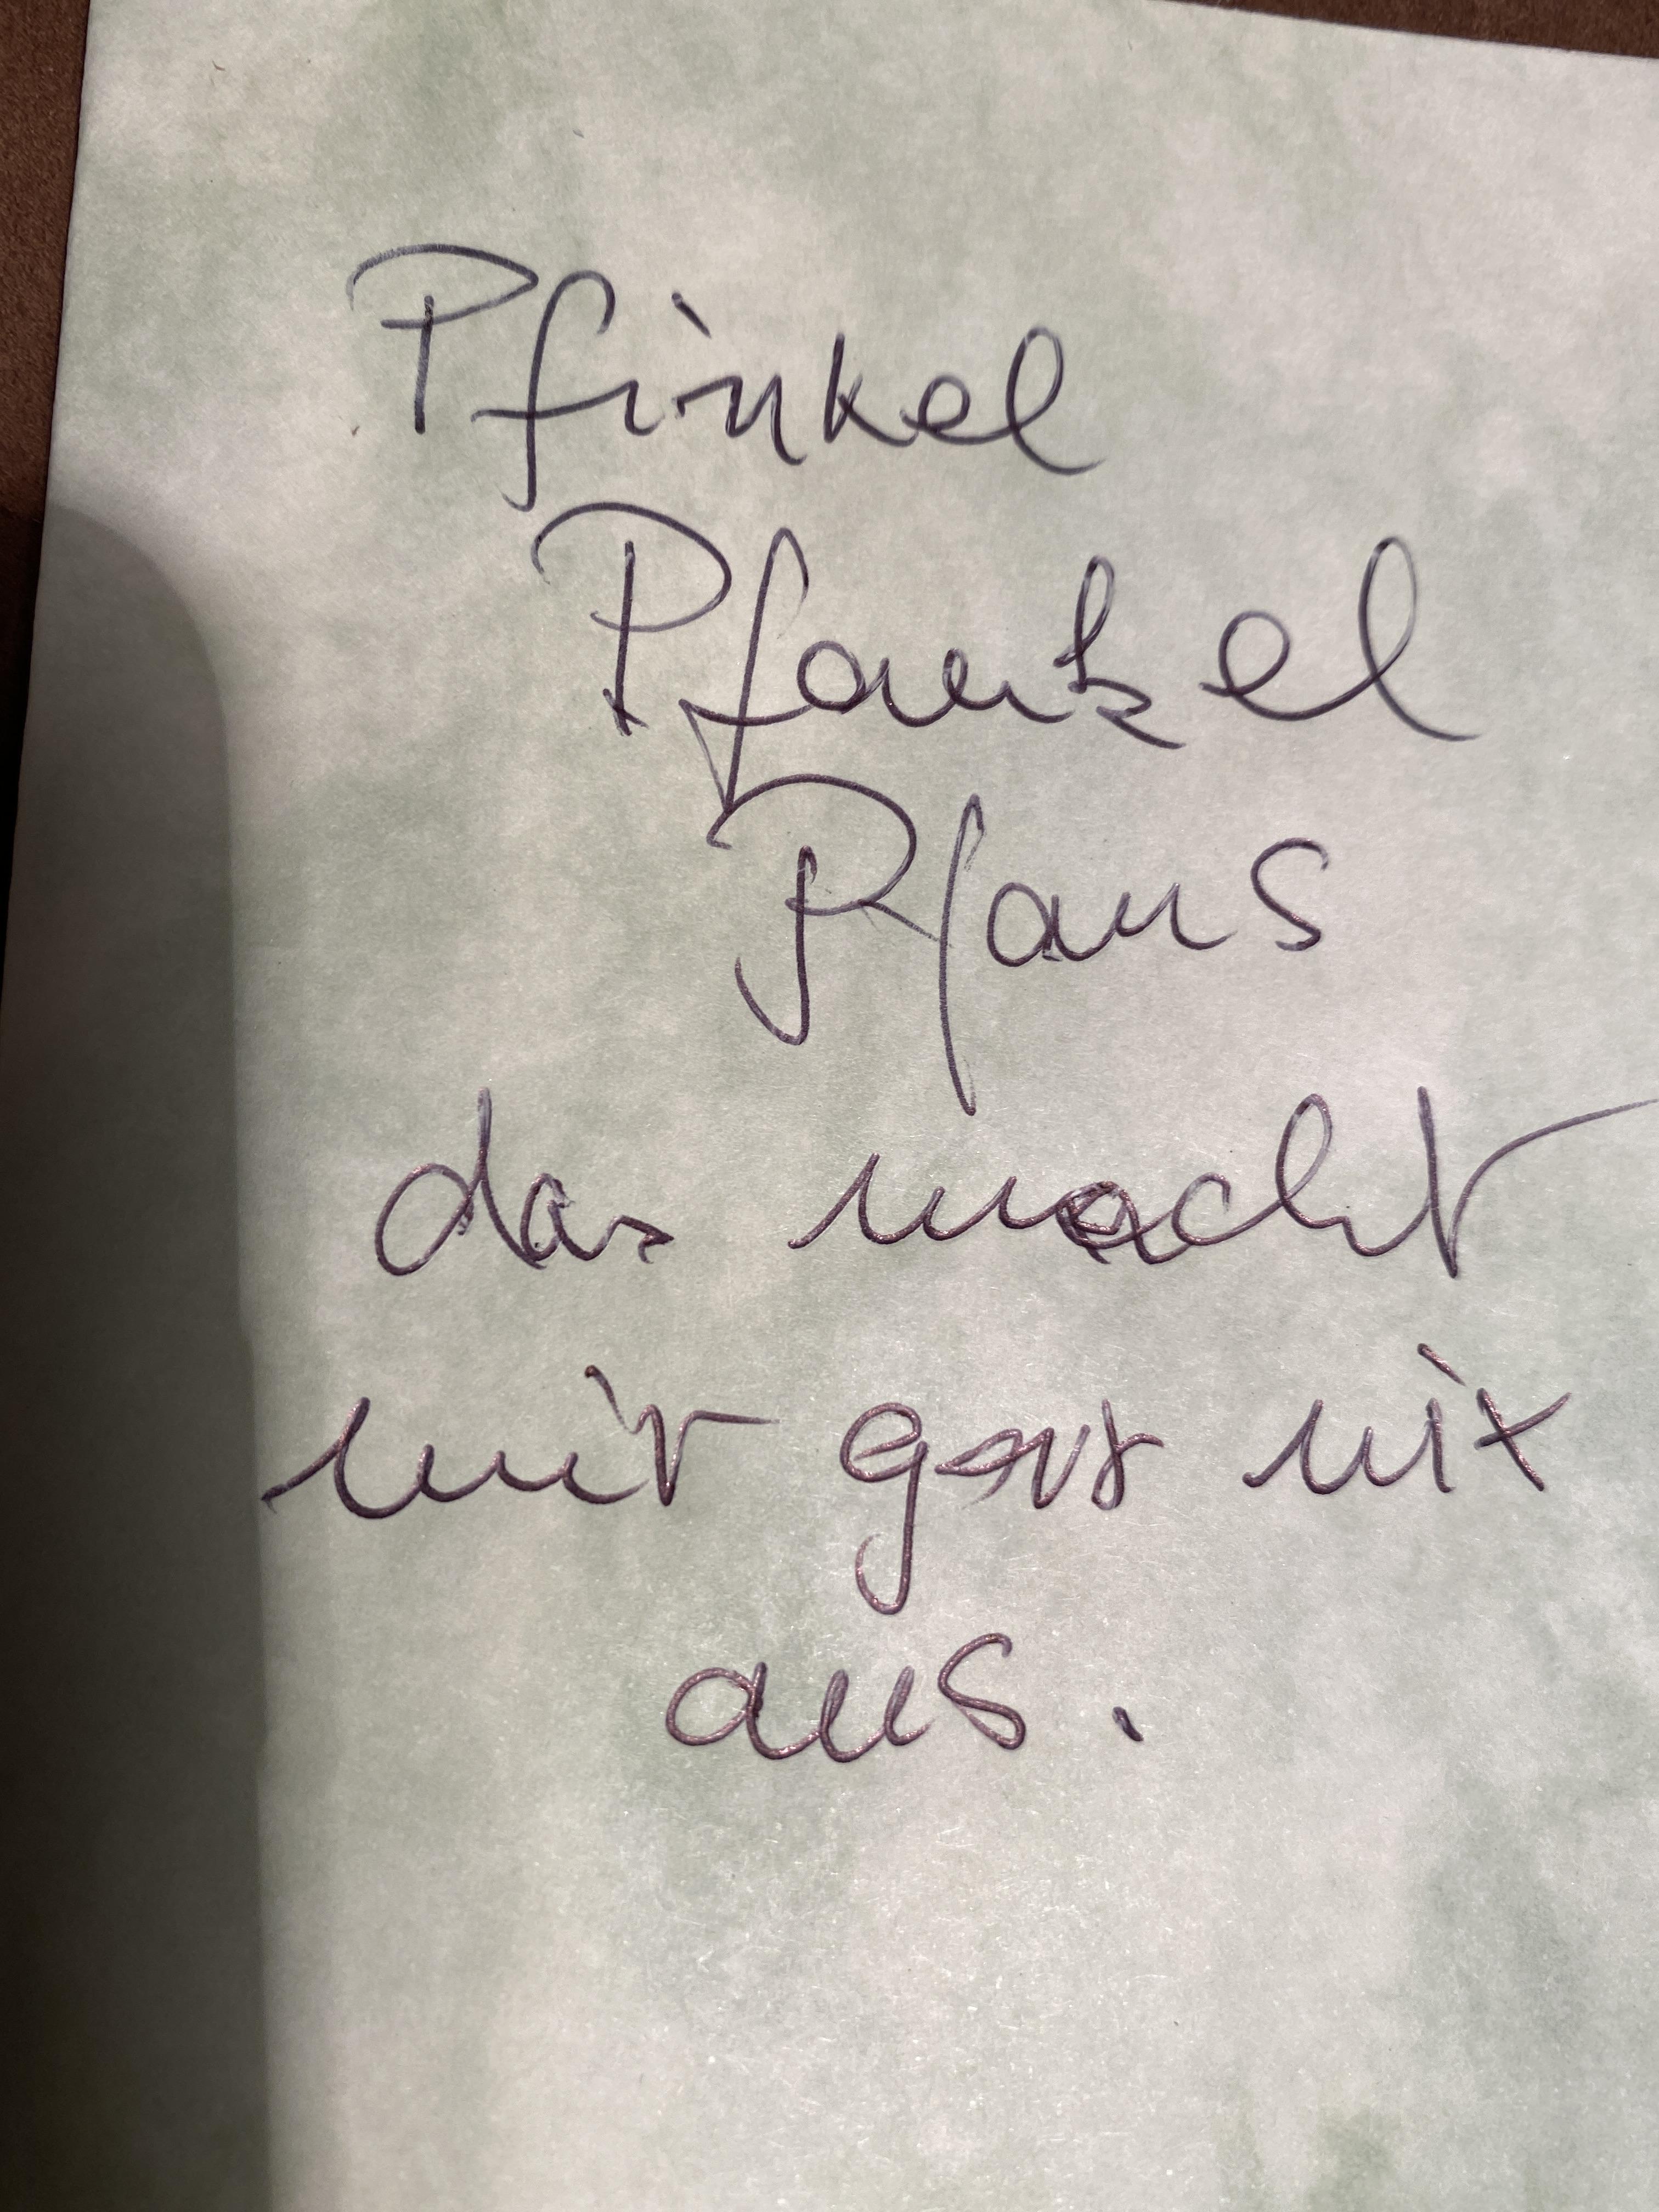 Pfinkel
Pfankel
Pfaus
das macht
mir gar nix
aus.